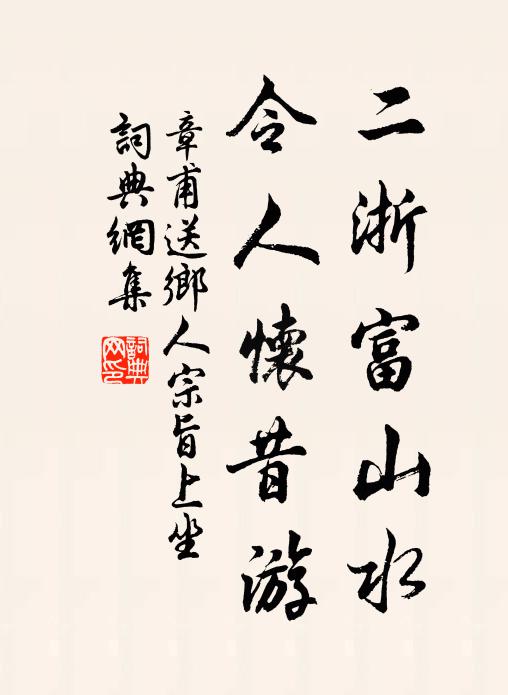 二浙富山水
令人懷昔游
章甫送鄉人宗旨上坐
詞典網集
詞典網印